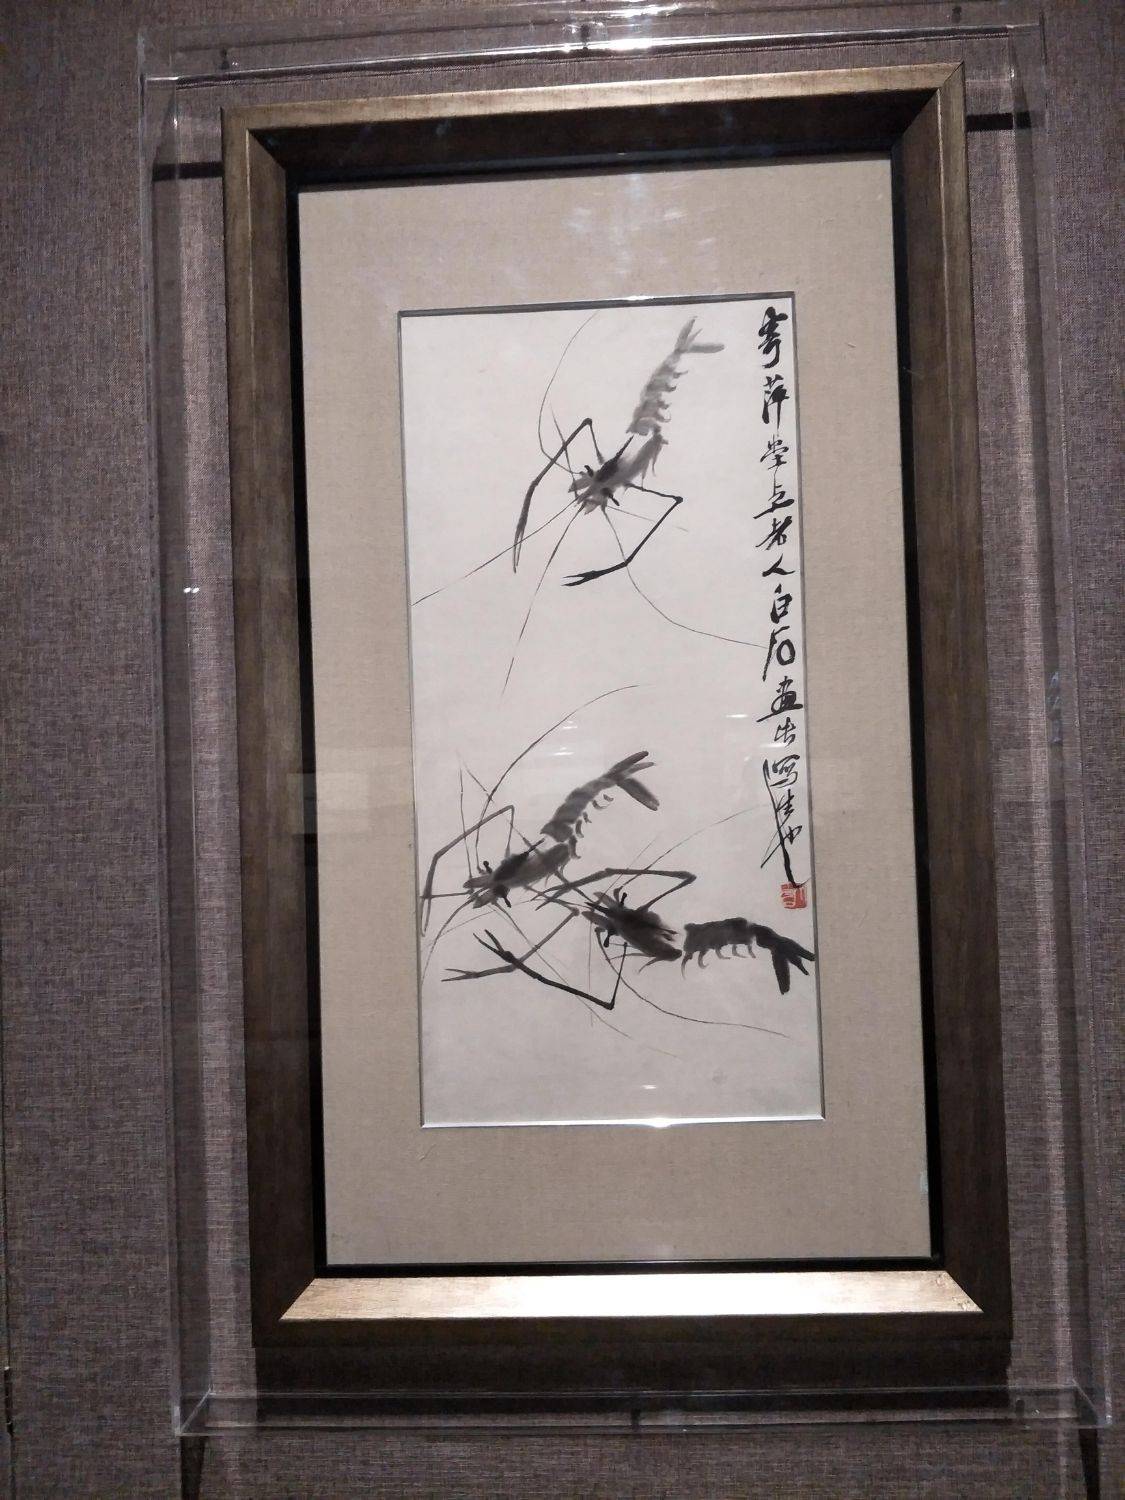 寄萍堂上老人白石画虫写生也